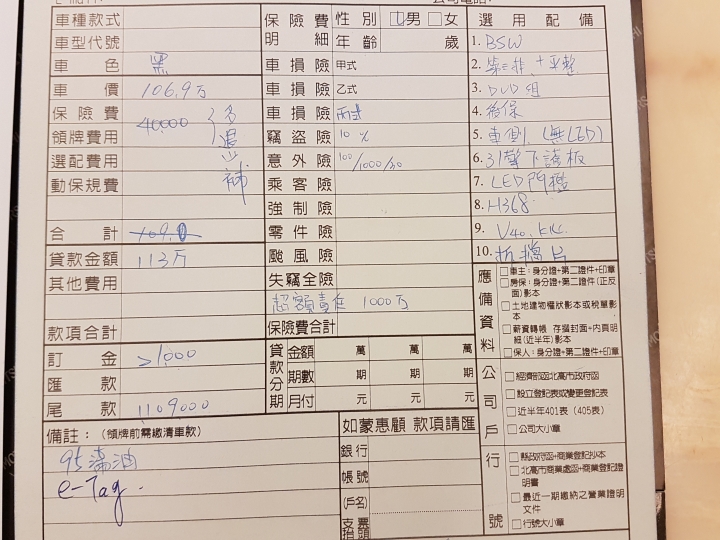 車種款式
車型代號
車色 黑
車價 106.9万
保險費 40000 多退少補
領牌費用
選配費用
動保規費
合計 109.
貸款金額 113万
其他費用
款項合計
訂金 1000
匯款
尾款 1109000
備註：(領牌前需繳清車款)
95滿油
e-Tag.
保險費明細 性別 □男 □女
年齡 歲
車損險 甲式
車損險 乙式
車損險 丙式
竊盜險 10%
意外險 100/1000/30
乘客險
強制險
零件險
颱風險
失竊全險
超額責任 1000万
保險費合計
貸款分期 金額 萬 萬 萬
期數 期 期 期
月付 元 元 元
如蒙惠顧 款項請匯
銀行
帳號
(戶名)
支票抬頭
選用配備
1. BSW
2. 第三排 十平整
3. DVD 组
4. 後保
5. 車側 (無LED)
6. 引擎下護板
7. LED門檻
8. H368
9. V40.
10. 擋片
應備資料
□車主：身分證+第二證件+印章
□房保：身分證+第二證件(正反面)影本
□土地建物權狀影本或稅單影本
□薪資轉帳 存摺封面+內頁明細(近半年)影本
□保人：身分證+第二證件+印章
公司戶
□經濟部函北高市政府函
□設立登記表或變更登記表
□近半年401表 (405表)
□公司大小章
行號
□縣政府函+商業登記抄本
□北高市商業處函+商業登記證明書
□最近一期繳納之營業證明文件
□行號大小章